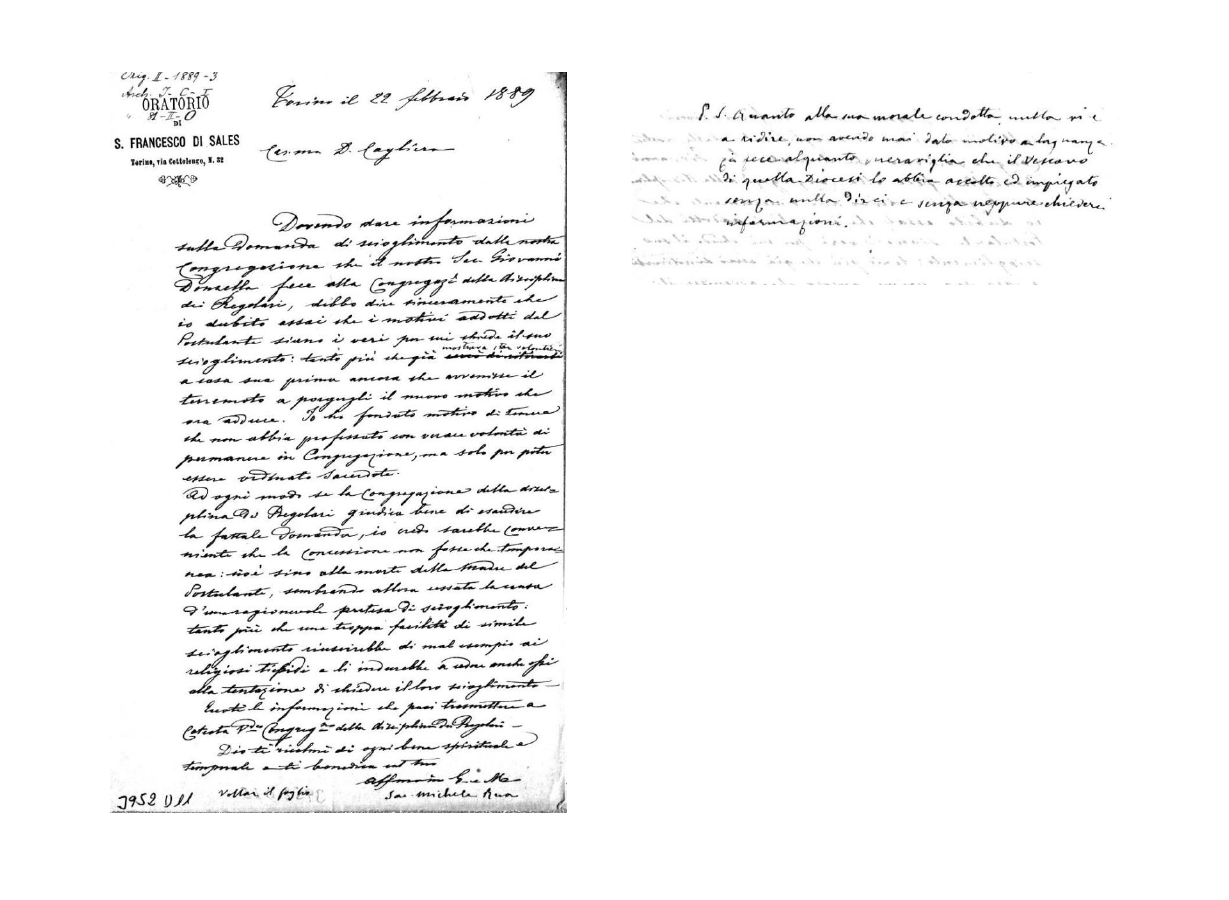 Orig. II - 1889 - 3
Arch. I - C - I
ORATORIO
DI
S. FRANCESCO DI SALES
Torino, via Cottolengo, N. 32
Torino il 22 febbraio 1889
Car.mo D. Cagliero
Dovendo dare informazioni
sulla Domanda di scioglimento dalla nostra
Congregazione che il nostro Sac Giovanni
Donzella fece alla Congregaze della disciplina
dei Regolari, debbo dire sinceramente che
io dubito assai che i motivi addotti dal
Postulante siano i veri per cui chieda il suo
scioglimento: tanto più che già mostrava star volontieri
a casa sua prima ancora che avvenisse il
terremoto a porgergli il nuovo motivo che
ora adduce. Io ho fondato motivo di temere
che non abbia professato con verace volontà di
permanere in Congregazione, ma solo per poter
essere ordinato Sacerdote.
Ad ogni modo se la Congregazione della disci-
plina De' Regolari giudica bene di esaudire
la fattale Domanda, io credo sarebbe conve-
niente che la concessione non fosse che tempora-
nea: cioè sino alla morte della Madre del
Postulante, sembrando allora cessata la causa
d'una ragionevole pretesa di scioglimento:
tanto più che una troppa facilità di simile
scioglimento riuscirebbe di mal esempio ai
religiosi tiepidi e li indurrebbe a cedere anche essi
alla tentazione di chiedere il loro scioglimento
Eccoti le informazioni che puoi trasmettere a
Cotesta Congreg.ne della disciplina De' Regolari -
Dio ti ricolmi di ogni bene spirituale e
temporale e ti benedica col tuo
Aff.mo in G. e M.
Sac. Michele Rua
Voltar il foglio
3952 D11
P. S. Quanto alla sua morale condotta, nulla vi è
a ridire, non avendo mai dato motivo a lagnanza.
fece alquanto meraviglia che il Vescovo
di quella Diocesi lo abbia accolto ed impiegato
senza nulla dirci e senza neppure chiedere
informazioni.